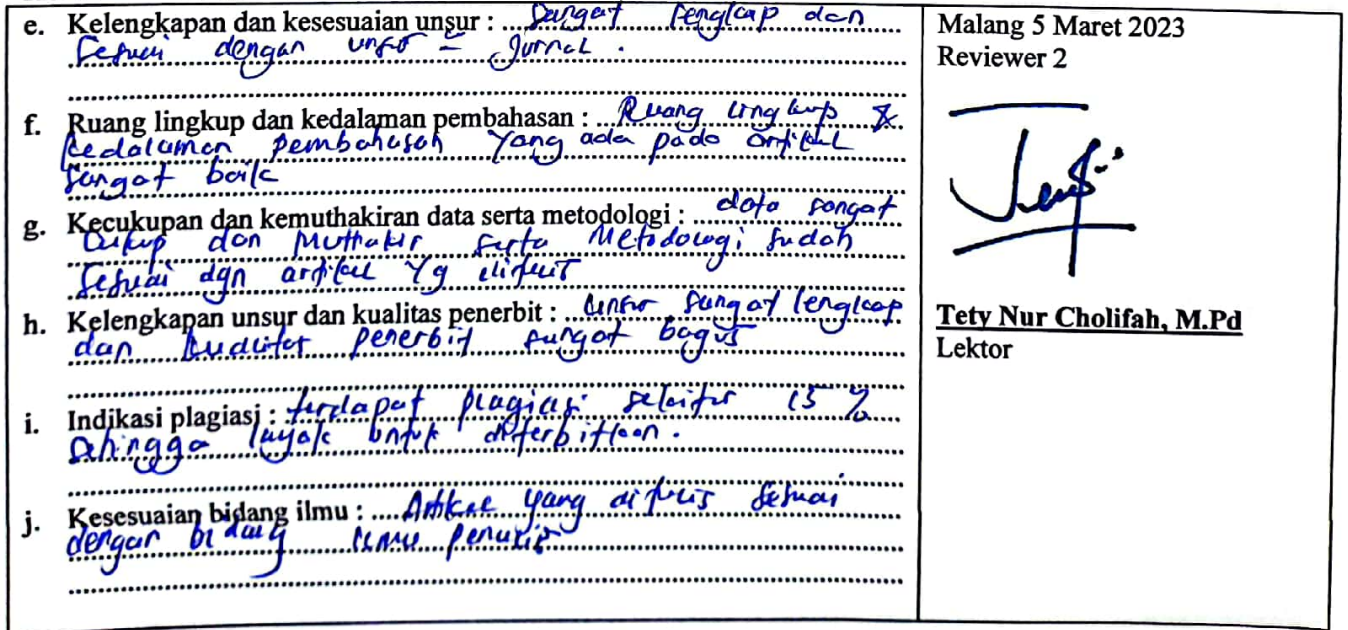 e. Kelengkapan dan kesesuaian unsur : Sangat lengkap dan
Sesuai dengan unsur - Jurnal .
f. Ruang lingkup dan kedalaman pembahasan : Ruang lingkup &
kedalaman pembahasan yang ada pada artikel
Sangat baik
g. Kecukupan dan kemuthakiran data serta metodologi : data sangat
Cukup dan Muthakir serta Metodologi sudah
Sesuai dgn artikel yg ditulis
h. Kelengkapan unsur dan kualitas penerbit : Unsur sangat lengkap
dan kualitas penerbit sangat bagus
i. Indikasi plagiasi : terdapat plagiasi sekitar 15 %
Sehingga layak untuk diterbitkan .
j. Kesesuaian bidang ilmu : Artikel yang ditulis sesuai
dengan bidang ilmu penulis
Malang 5 Maret 2023
Reviewer 2
Tety Nur Cholifah, M.Pd
Lektor